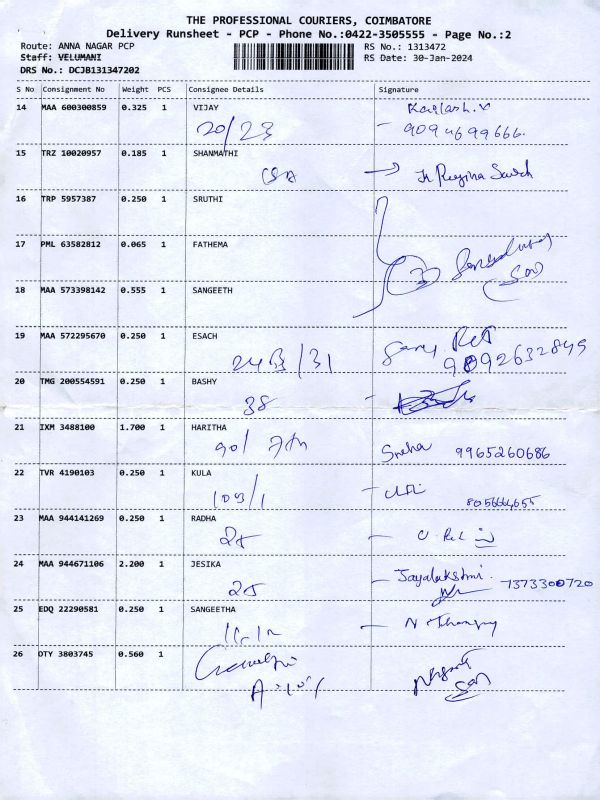 THE PROFESSIONAL COURIERS, COIMBATORE
Delivery Runsheet - PCP - Phone No.:0422-3505555 - Page No.:2
Route: ANNA NAGAR PCP RS No.: 1313472
Staff: VELUMANI RS Date: 30-Jan-2024
DRS No.: DCJB131347202
S No Consignment No Weight PCS Consignee Details Signature
14 MAA 600300859 0.325 1 VIJAY
20/23
15 TRZ 10020957 0.185 1 SHANMATHI
16 TRP 5957387 0.250 1 SRUTHI
17 PML 63582812 0.065 1 FATHEMA
18 MAA 573398142 0.555 1 SANGEETH
19 MAA 572295670 0.250 1 ESACH
9092632849
20 TMG 200554591 0.250 1 BASHY
38
21 IXM 3488100 1.700 1 HARITHA
Sneha 9965260686
22 TVR 4190103 0.250 1 KULA
23 MAA 944141269 0.250 1 RADHA
25
24 MAA 944671106 2.200 1 JESIKA
25 Jayalakshmi 7373300720
25 EDQ 22290581 0.250 1 SANGEETHA
26 DTY 3803745 0.560 1